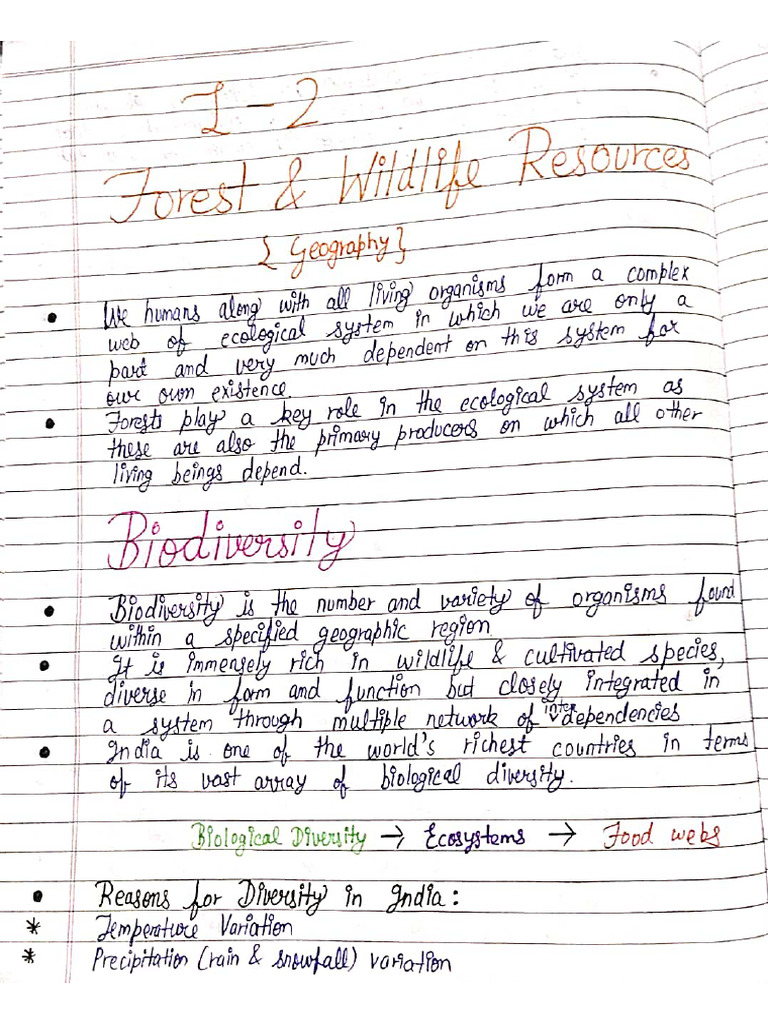 L-2
Forest & Wildlife Resources
{ Geography}
• We humans along with all living organisms form a complex
web of ecological system in which we are only a
part and very much dependent on this system for
our own existence
• Forests play a key role in the ecological system as
these are also the primary producers on which all other
living beings depend.
Biodiversity
• Biodiversity is the number and variety of organisms found
within a specified geographic region
• It is immensely rich in wildlife & cultivated species,
diverse in form and function but closely integrated in
a system through multiple network of interdependencies
• India is one of the world's richest countries in terms
of its vast array of biological diversity.
Biological Diversity → Ecosystems → Food webs
• Reasons for Diversity in India :
* Temperature Variation
* Precipitation (rain & snowfall) variation